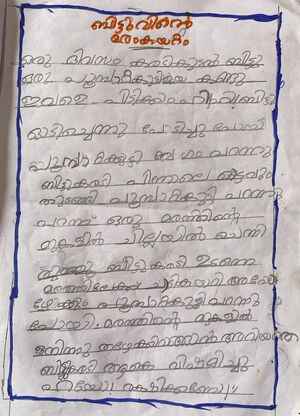 ബിട്ടുവിന്റെ
മരംകയറ്റം
ഒരു ദിവസം കരടികുട്ടൻ ബിട്ടു
ഒരു പൂമ്പാറ്റകുട്ടിയെ കണ്ടു
ഇവളെ പിടിക്കാം ഹിഹി ബിട്ടു
ഓടിച്ചെന്നു പേടിച്ചു പോയി
പൂമ്പാറ്റക്കുട്ടി വേഗം പറന്നു
ബിട്ടുകരടി പിന്നാലെ ഓട്ടവും
തുടങ്ങി പൂമ്പാറ്റകുട്ടി പറന്നു
പറന്ന് ഒരു മരത്തിന്റെ
മുകളിൽ ചില്ലയിൽ ചെന്നി
രുന്നു ബിട്ടു കരടി ഉടനെ
മരത്തിലേക്ക് ചാടികയറി അപ്പോ
ഴേക്കും പൂമ്പാറ്റകുട്ടി പറന്നു
പോയി. മരത്തിന്റെ മുകളിൽ
നിന്നു താഴേക്കിറങ്ങാൻ അറിയാതെ
ബിട്ടുകരടി ആകെ വിഷമിച്ചു
ഹയ്യോ രക്ഷിക്കണേ!"